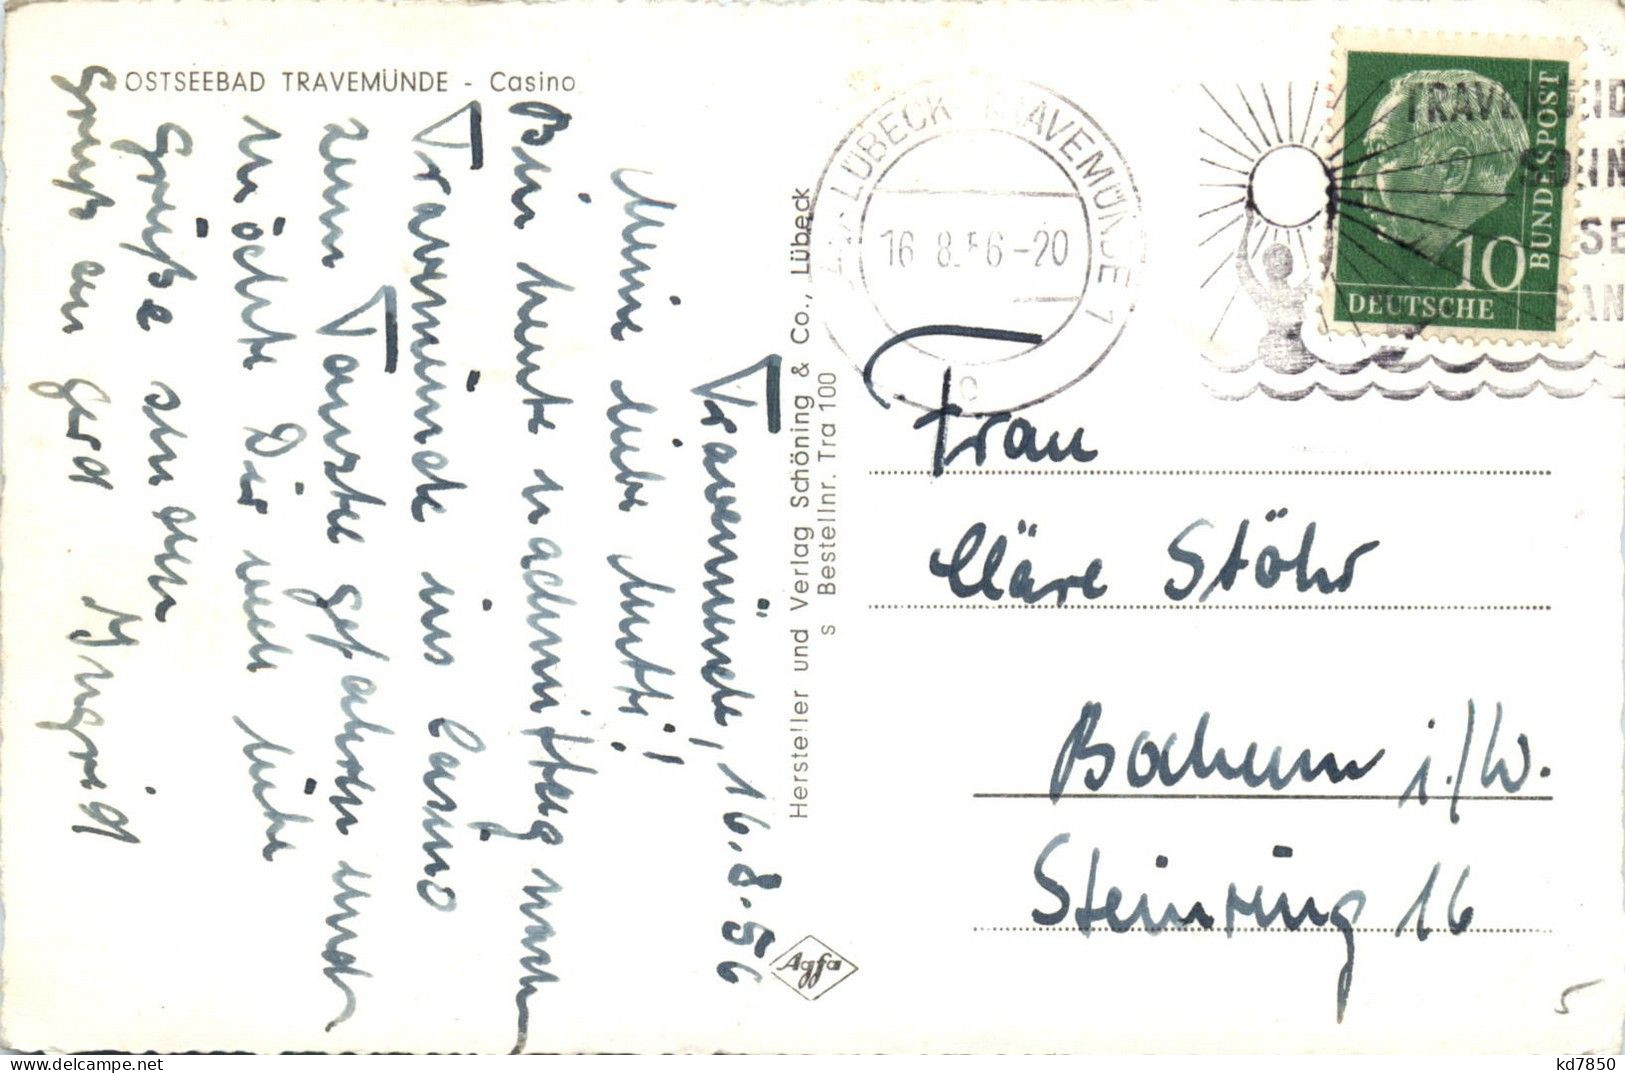 OSTSEEBAD TRAVEMÜNDE - Casino
Travemünde, 16.8.56
Meine liebe Mutti!
Bin heute nachmittag nach
Travemünde ins Casino
zum Tanztee gefahren und
möchte Dir viele liebe
Grüße senden
Gruß an Gerd Ingrid
Hersteller und Verlag Schöning & Co., Lübeck
s Bestellnr. Tra 100
Agfa
LÜBECK-TRAVEMÜNDE 1
16.8.56-20
c
TRAVEMÜND
SONN
SE
SAN
10
DEUTSCHE
BUNDESPOST
Frau
Cläre Stöhr
Bochum i./W.
Steinring 16
5
kd7850